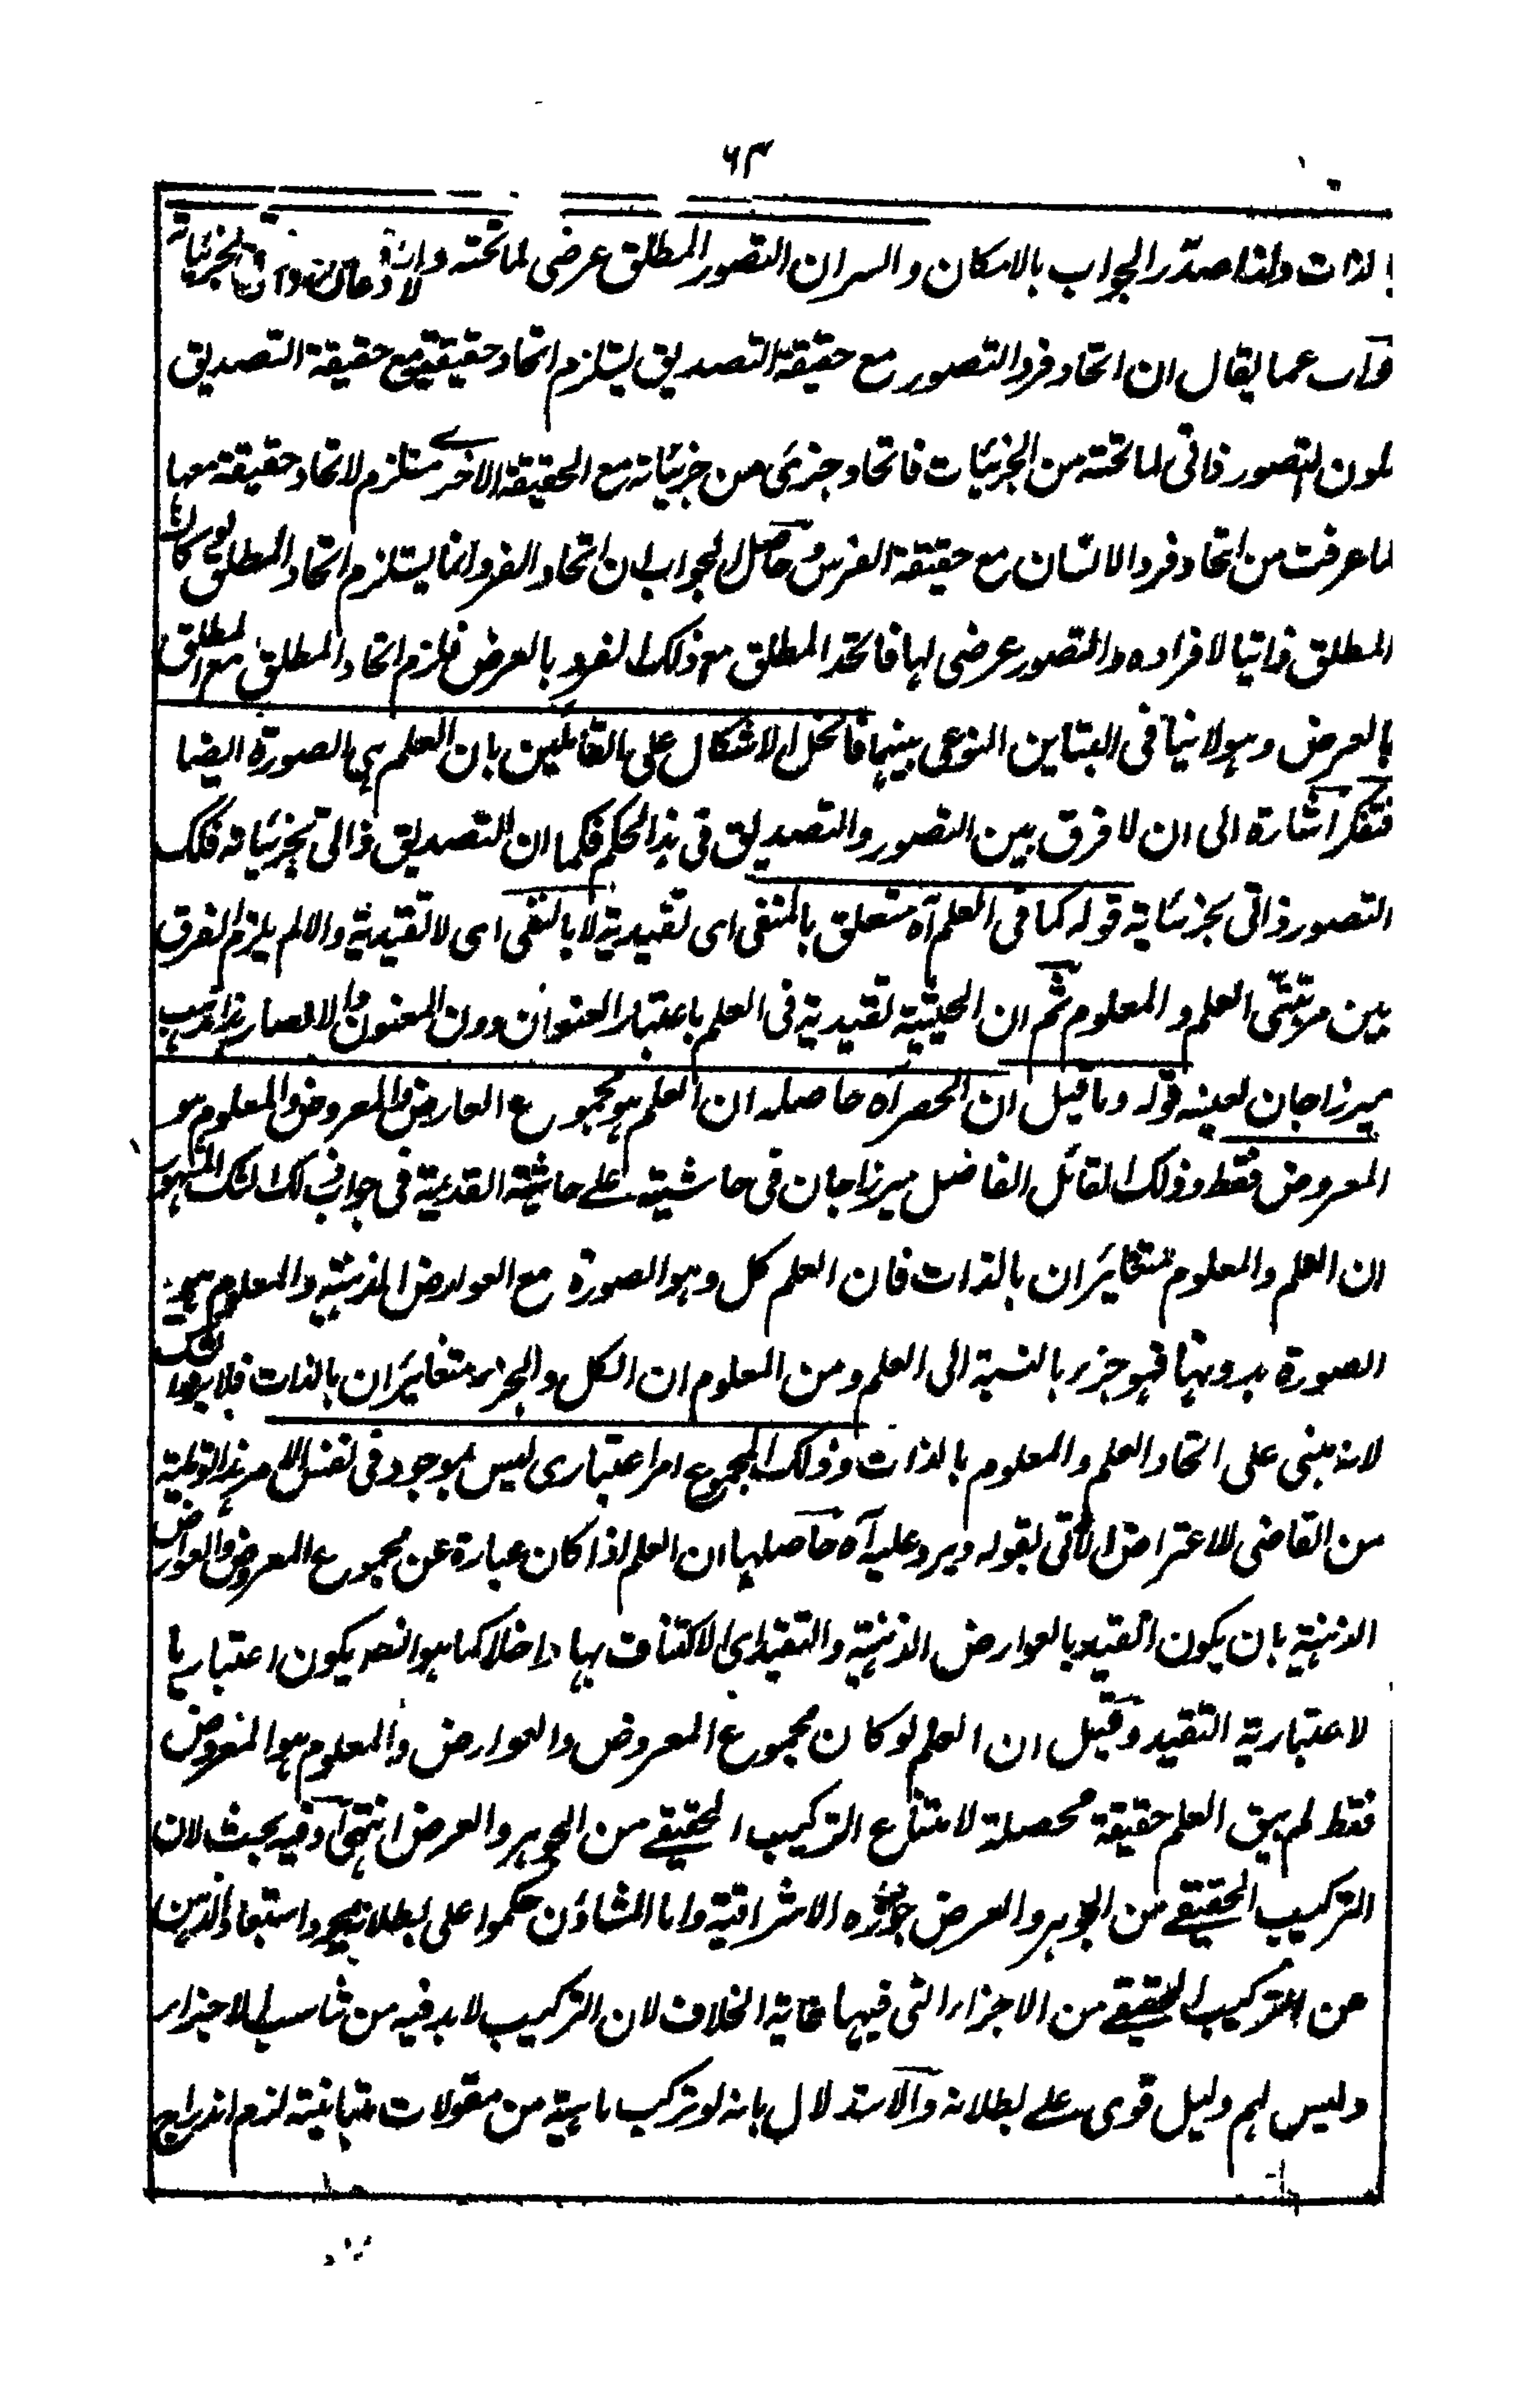 ٦٣
بالذات ولذا صدّر الجواب بالامكان والسر ان التصور المطلق عرضى لما تحته
عما يقال ان اتحاد فرد التصور مع حقيقة التصديق يستلزم اتحاد حقيقته مع حقيقة التصديق
لكون التصور ذاتى لما تحته من الجزئيات فاتحاد جزئى من جزئياته مع الحقيقة الاخرے مستلزم لاتحاد حقيقته معها
لما عرفت من اتحاد فرد الانسان مع حقيقة الفرس وحاصل الجواب ان اتحاد الفرد انما يستلزم اتحاد المطلق لو كان
المطلق ذاتيا لافراده والتصور عرضى لها فاتحد المطلق مع ذلك الفرد بالعرض فلزم اتحاد المطلق مع المطلق
بالعرض وہو لا ينافى التباين النوعى بينہما فانحل الاشكال على القائلين بان العلم ہى الصورة ايضا
فتفكر اشارة الى ان لا فرق بين التصور والتصديق فى ہذا الحكم فكما ان التصديق ذاتى لجزئياته فكك
التصور ذاتى لجزئياته قوله كما فى العلم آه متعلق بالمنفى اى تقييدية لا بالنفى اى لا تقييدية والا لم يلزم الفرق
بين مرتبتى العلم والمعلوم ثم ان الحيثية تقييدية فى العلم باعتبار العنوان دون المعنون والا لصار ہذا مذہب
ميرزاجان بعينه قوله وما قيل ان الحصر آه حاصله ان العلم ہو مجموع العارض والمعروض والمعلوم ہو
المعروض فقط وذلك القائل الفاضل ميرزاجان فى حاشيته علے حاشية القديمة فى جواب ذلك الشك المشہور
ان العلم والمعلوم متغائران بالذات فان العلم كل وہو الصورة مع العوارض الذہنية والمعلوم ہو
الصورة بدونہا فہو جزء بالنسبة الى العلم ومن المعلوم ان الكل والجزء متغائران بالذات فلا يرد الشك
لانه مبنى على اتحاد العلم والمعلوم بالذات وذلك المجموع امر اعتبارى ليس بموجود فى نفس الامر ہذا توطية
من القاضى للاعتراض الآتى بقوله ويرد عليه آه حاصلہا ان العلم اذا كان عبارة عن مجموع المعروض والعوارض
الذہنية بان يكون القيد بالعوارض الذہنية والتقيد اى الاكتناف بہا داخلا كما ہو يكون اعتباريا
لاعتبارية التقيد وقيل ان العلم لو كان مجموع المعروض والعوارض والمعلوم ہو المعروض
فقط لم يبق العلم حقيقة محصلة لامتناع التركيب الحقيقے من الجوہر والعرض انتہى وفيه بحث لان
التركيب الحقيقے من الجوہر والعرض جوزه الاشراقية واما المشاؤن حكموا على بطلانه بمجرد استبعاد الذہن
عن التركيب الحقيقے من الاجزاء التى فيہا غاية الخلاف لان التركيب لا بد فيه من تناسب الاجزاء
وليس لہم دليل قوى علے بطلانه والاستدلال بانه لو تركب ماہية من مقولات متباينة لزم اندراج